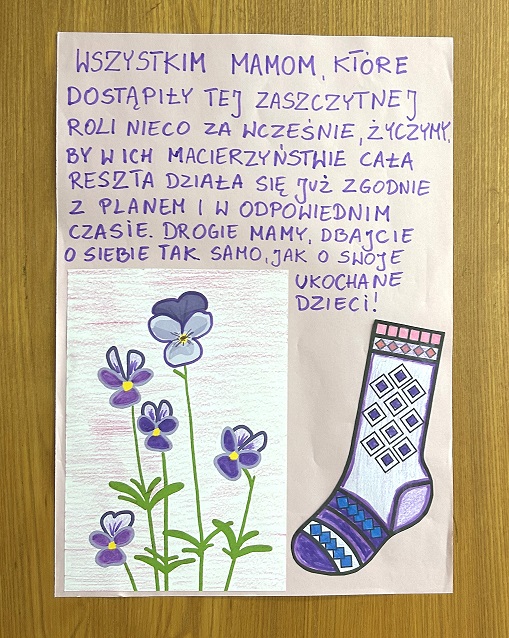 WSZYSTKIM MAMOM, KTÓRE
DOSTĄPIŁY TEJ ZASZCZYTNEJ
ROLI NIECO ZA WCZEŚNIE, ŻYCZYMY,
BY W ICH MACIERZYŃSTWIE CAŁA
RESZTA DZIAŁA SIĘ JUŻ ZGODNIE
Z PLANEM I W ODPOWIEDNIM
CZASIE. DROGIE MAMY, DBAJCIE
O SIEBIE TAK SAMO, JAK O SWOJE
UKOCHANE
DZIECI!